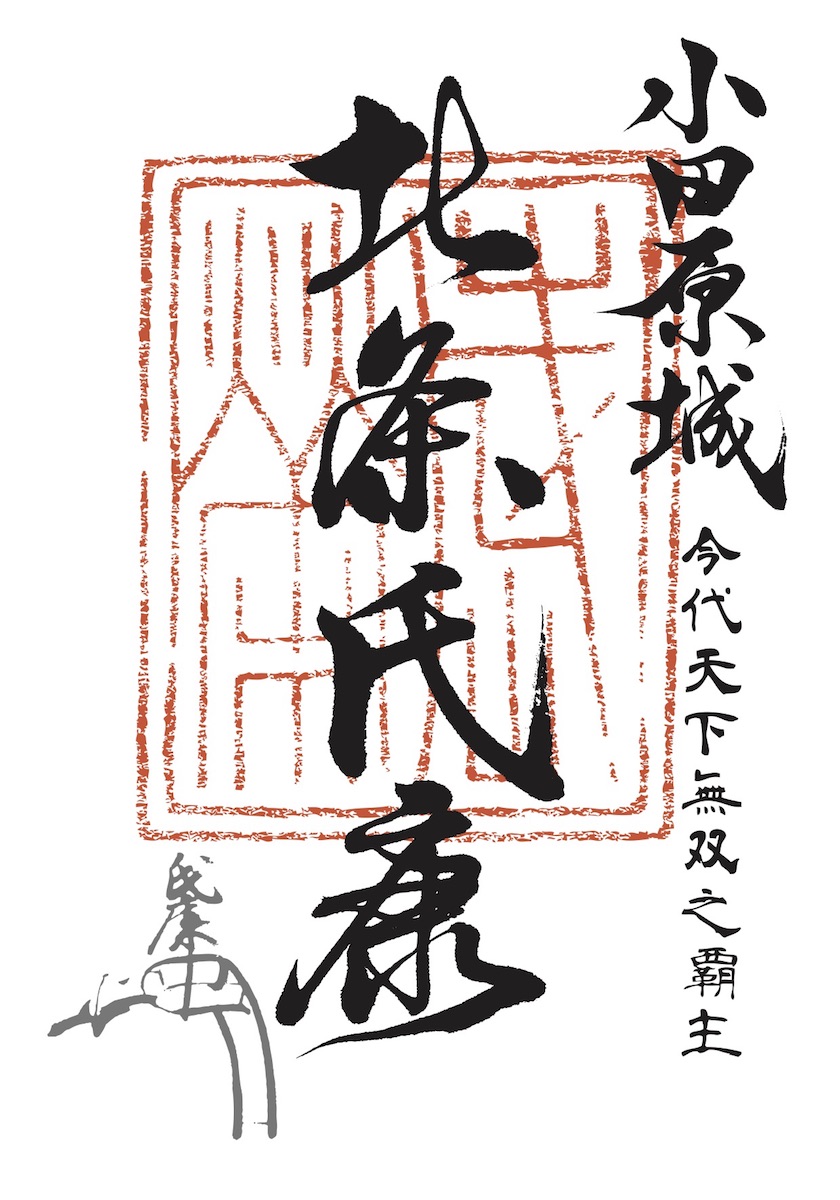 小田原城
今代天下無双之覇主
北条氏康
氏康